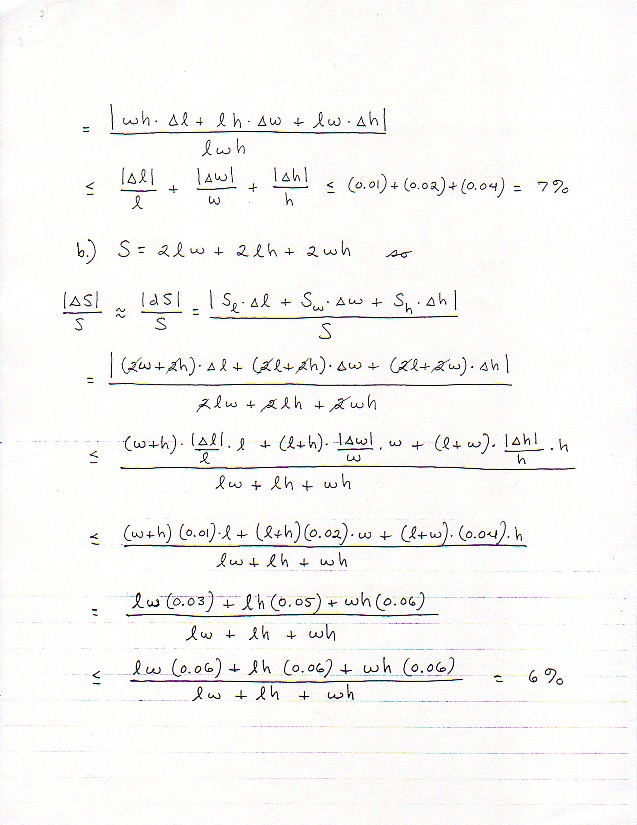 = |wh·Δl + lh·Δw + lw·Δh| / lwh
≤ |Δl|/l + |Δw|/w + |Δh|/h ≤ (0.01)+(0.02)+(0.04) = 7%
b.) S = 2lw + 2lh + 2wh so
|ΔS|/S ≈ |dS|/S = |S_l·Δl + S_w·Δw + S_h·Δh| / S
= |(2w+2h)·Δl + (2l+2h)·Δw + (2l+2w)·Δh| / 2lw + 2lh + 2wh
≤ (w+h)·|Δl|/l·l + (l+h)·|Δw|/w·w + (l+w)·|Δh|/h·h / lw + lh + wh
≤ (w+h)(0.01)·l + (l+h)(0.02)·w + (l+w)·(0.04)·h / lw + lh + wh
= lw(0.03) + lh(0.05) + wh(0.06) / lw + lh + wh
≤ lw(0.06) + lh(0.06) + wh(0.06) / lw + lh + wh = 6%